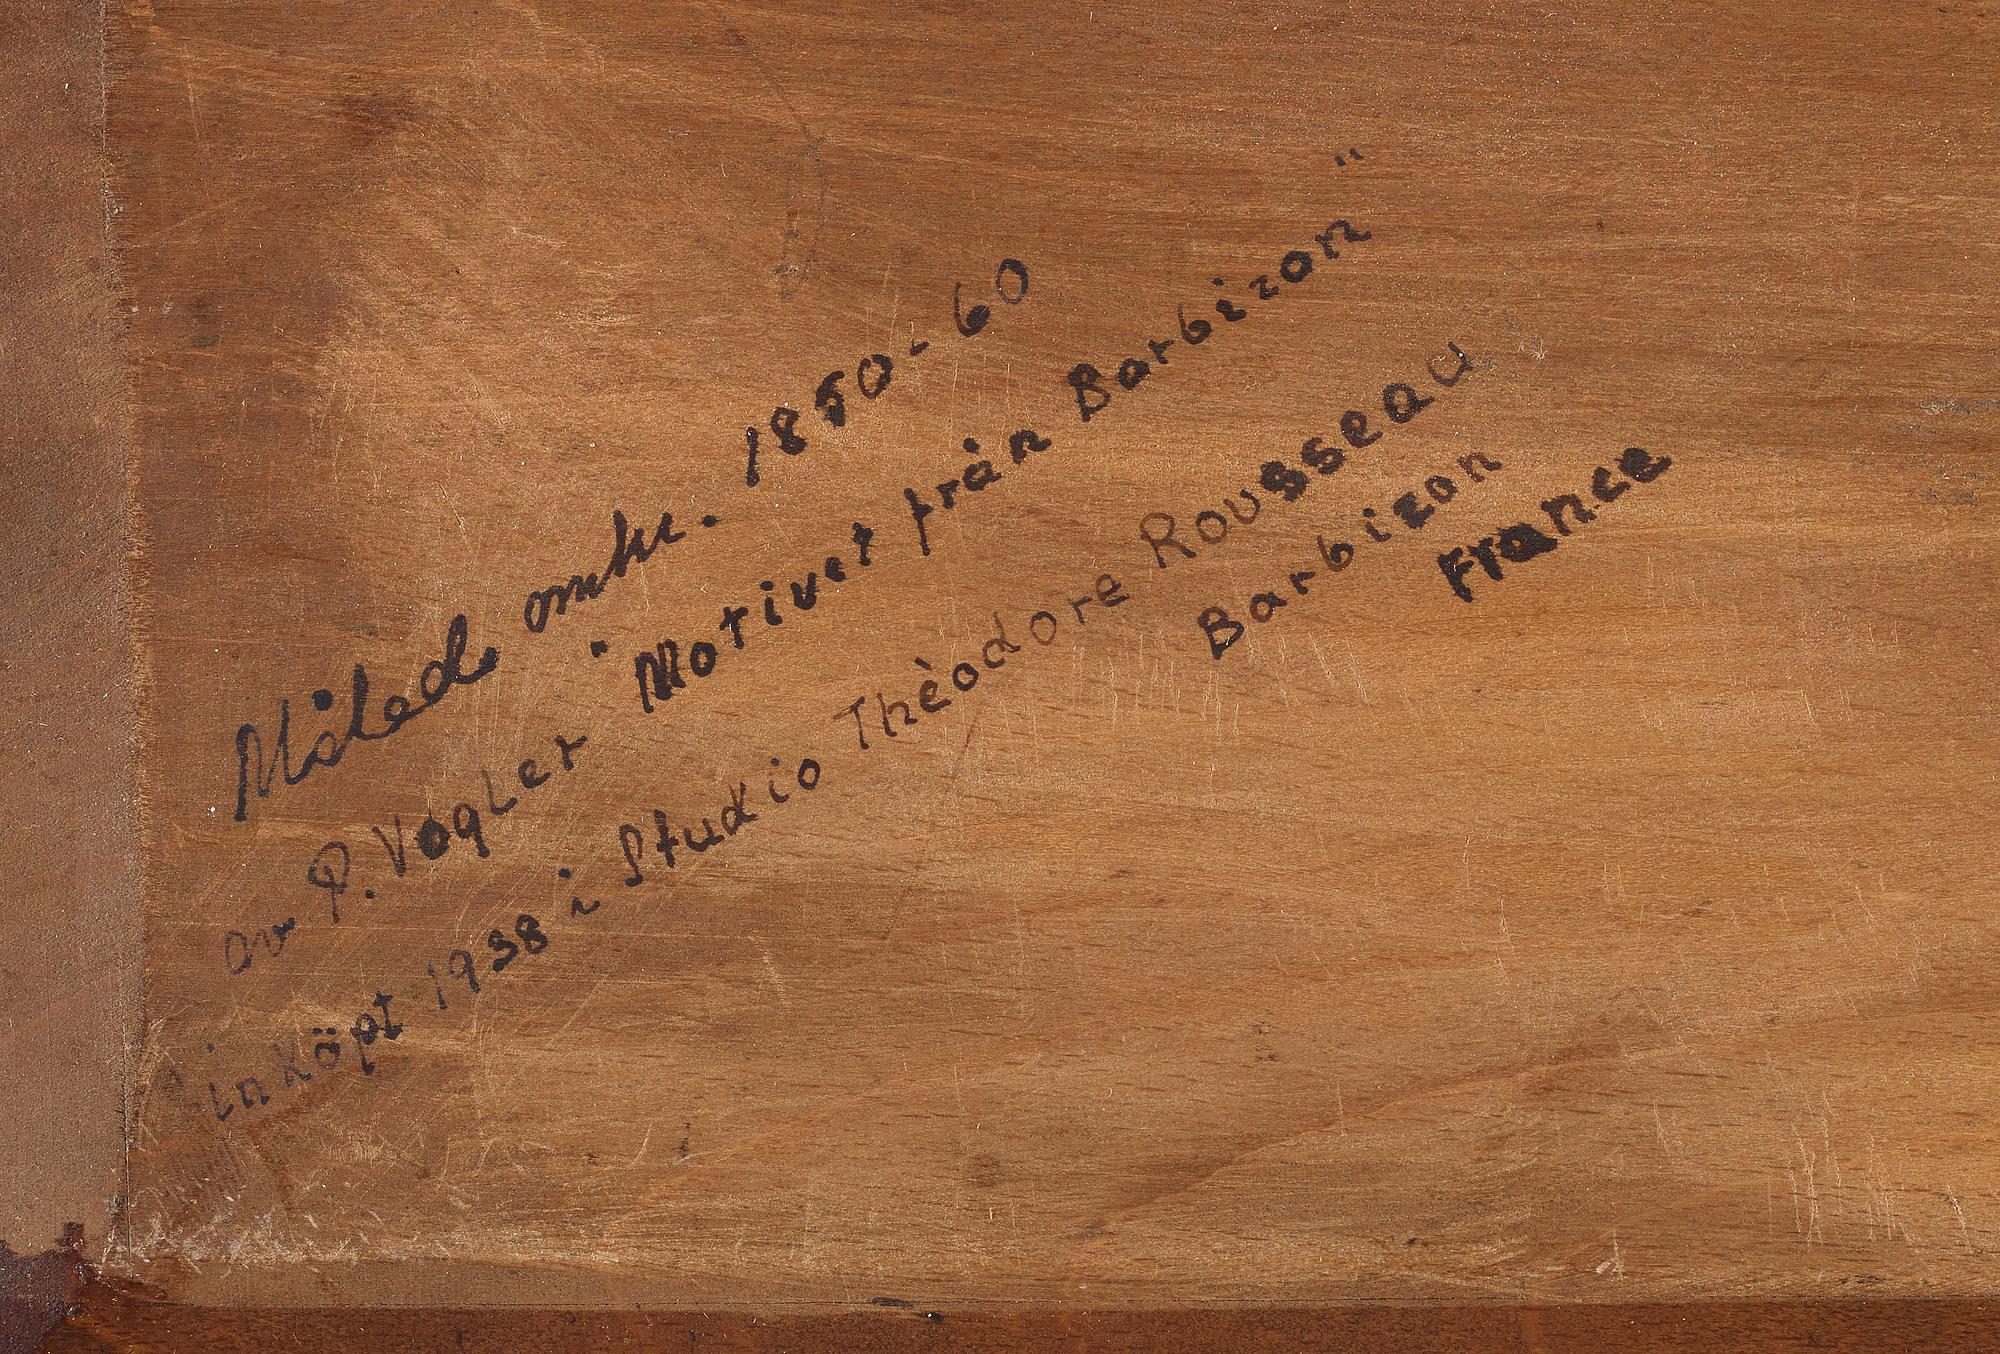 Målad omkr. 1850-60
av P. Vogler "Motivet från Barbizon"
inköpt 1938 i Studio Thèodore Rousseau
Barbizon
France